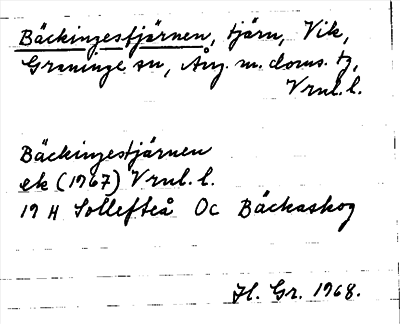 Bäckingestjärnen, tjärn, Vik,
Graninge sn, Ång. m. doms. tg,
Vrnl. l.
Bäckingestjärnen
ek (1967) Vrnl. l.
19 H Sollefteå Oc Bäckaskog
H. Gr. 1968.